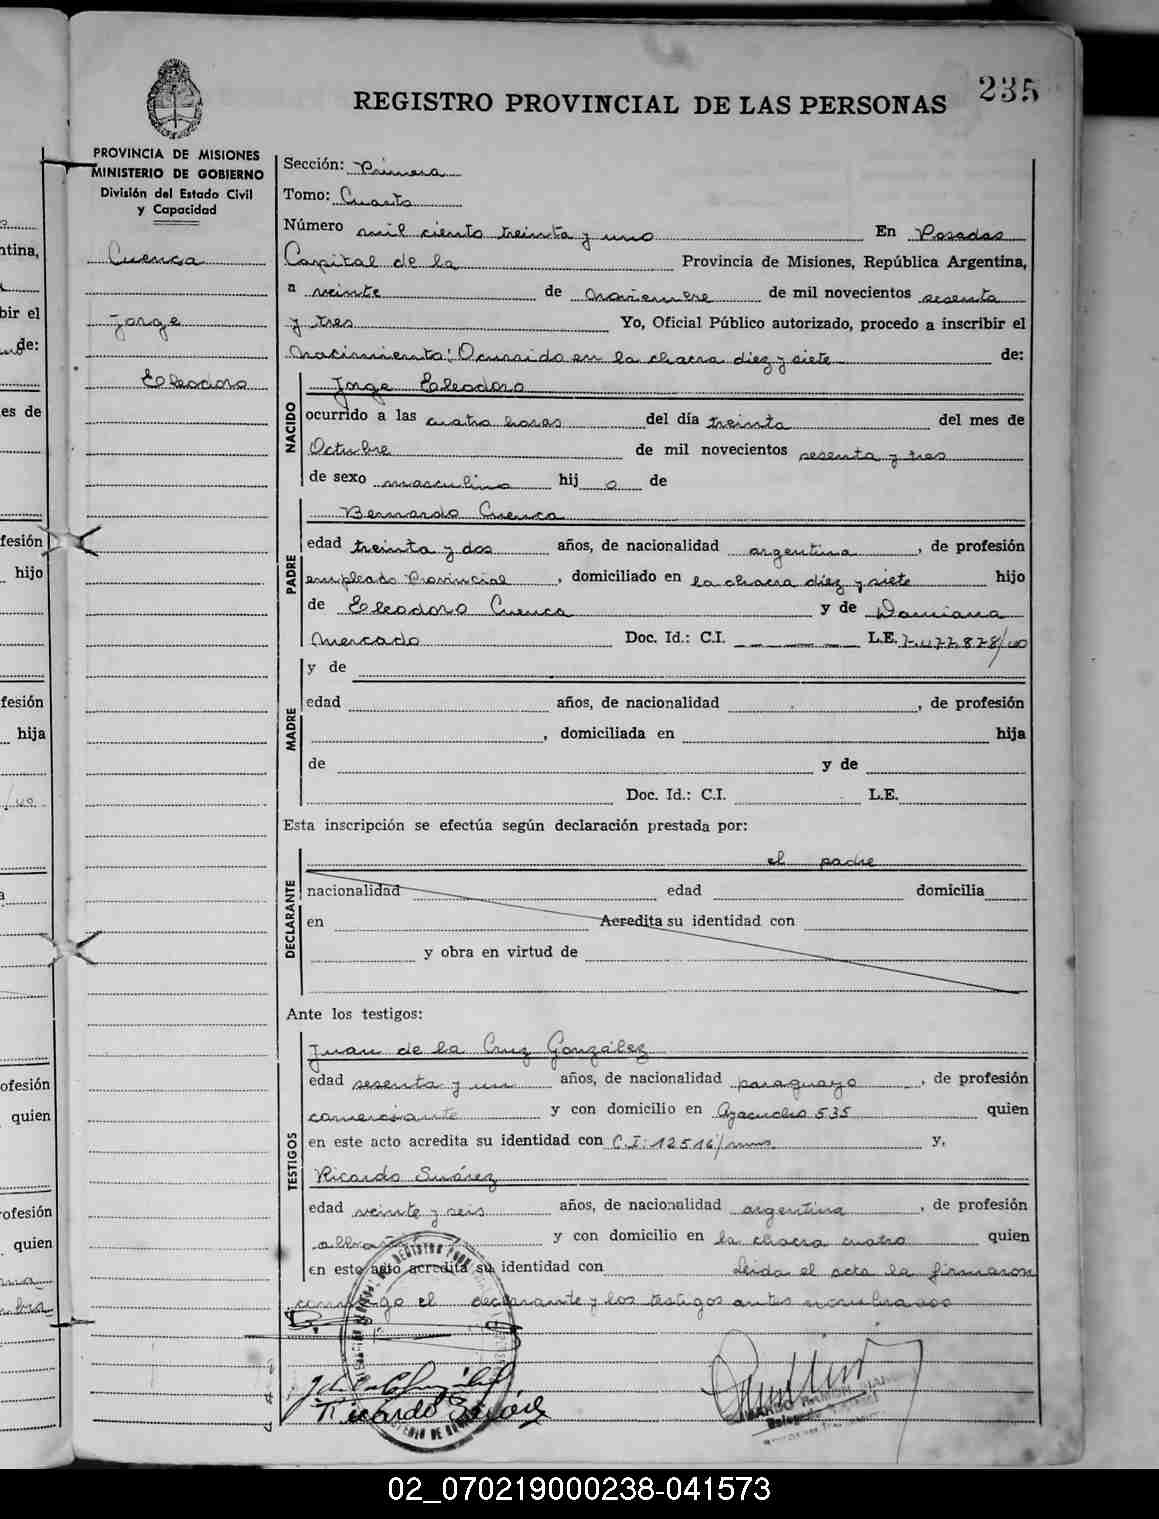 235
REGISTRO PROVINCIAL DE LAS PERSONAS
PROVINCIA DE MISIONES
MINISTERIO DE GOBIERNO
División del Estado Civil
y Capacidad
Cuenca
Jorge
Eleodoro
Sección: Primera
Tomo: Cuarto
Número mil ciento treinta y uno En Posadas
Capital de la Provincia de Misiones, República Argentina,
a veinte de Noviembre de mil novecientos sesenta
y tres Yo, Oficial Público autorizado, procedo a inscribir el
Nacimiento: Ocurrido en la chacra diez y siete de:
NACIDO
Jorge Eleodoro
ocurrido a las cuatro horas del día treinta del mes de
Octubre de mil novecientos sesenta y tres
de sexo masculino hij o de
PADRE
Bernardo Cuenca
edad treinta y dos años, de nacionalidad argentina, de profesión
empleado Provincial, domiciliado en la chacra diez y siete hijo
de Eleodoro Cuenca y de Damiana
Mercado Doc. Id.: C.I. L.E.
y de
MADRE
edad años, de nacionalidad , de profesión
, domiciliada en hija
de y de
Doc. Id.: C.I. L.E.
Esta inscripción se efectúa según declaración prestada por:
el padre
DECLARANTE
nacionalidad edad domicilia
en Acredita su identidad con
y obra en virtud de
Ante los testigos:
TESTIGOS
Juan de la Cruz González
edad sesenta y un años, de nacionalidad paraguayo, de profesión
comerciante y con domicilio en Ayacucho 535 quien
en este acto acredita su identidad con C.I: 12516/ y,
Ricardo Suárez
edad veinte y seis años, de nacionalidad argentina, de profesión
y con domicilio en la chacra cuatro quien
en este acto acredita su identidad con Leida el acta la firmaron
conmigo el declarante y los testigos antes nombrados
Ricardo Suárez
02_070219000238-041573